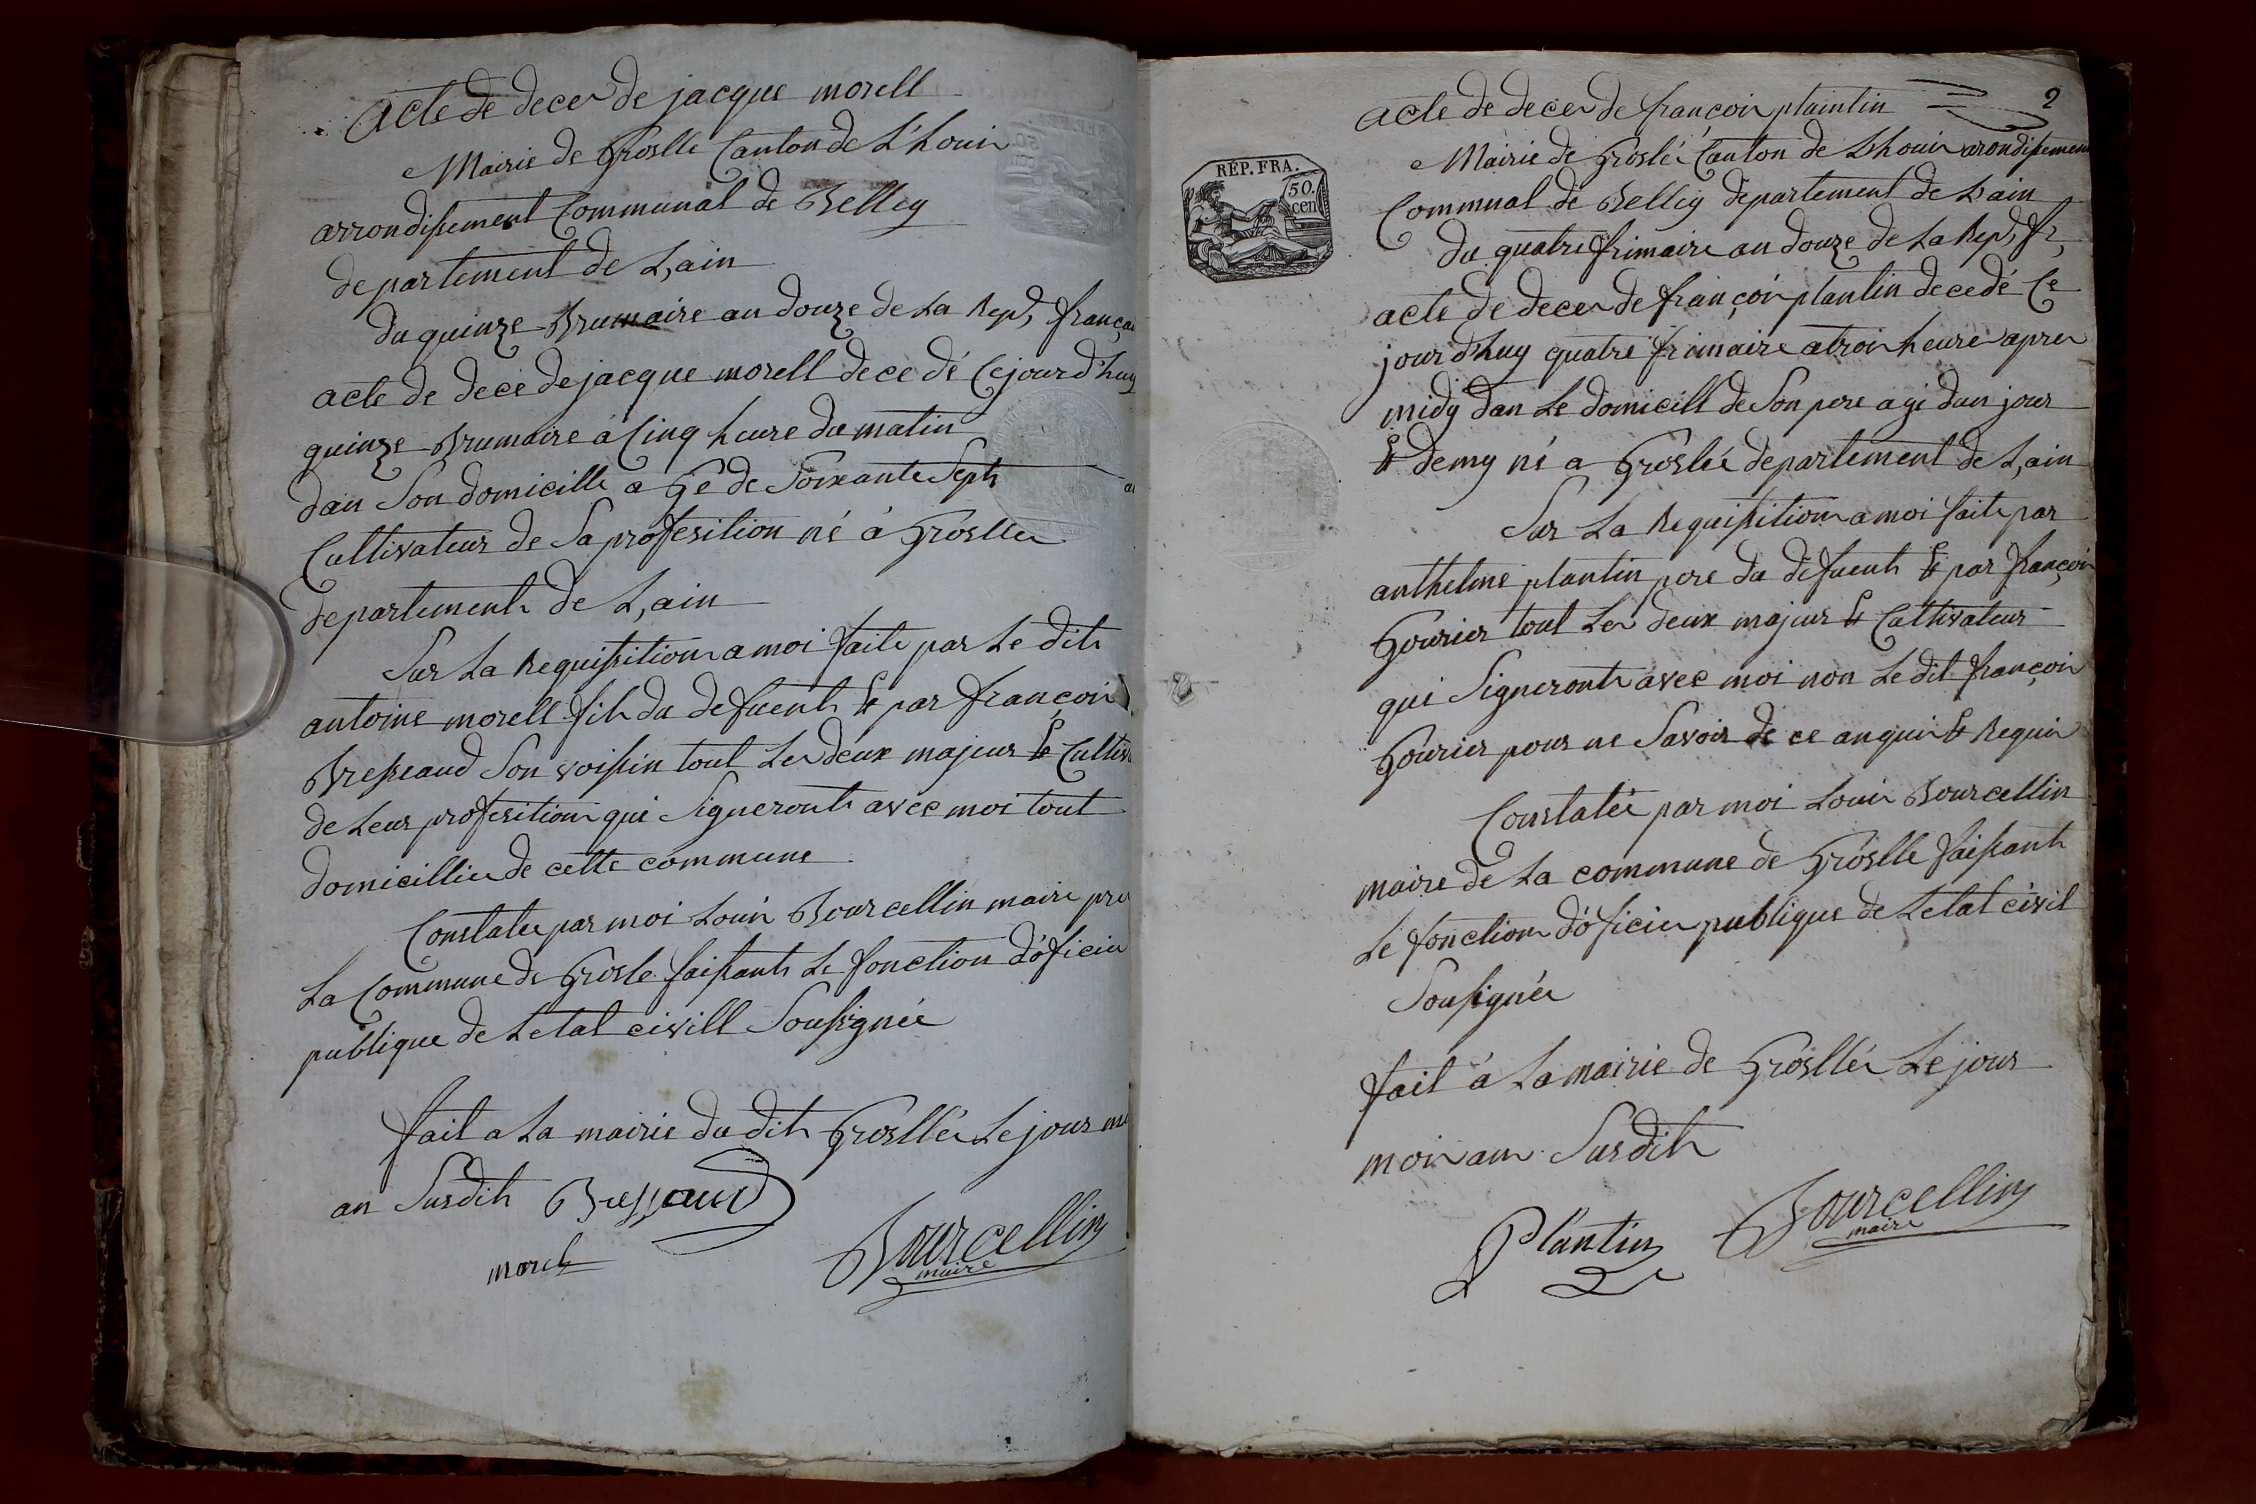 acte de deces de jacque morell
Mairie de Groslle Canton de L'houis
arrondissement Communal de Belley
departement de L,ain
du quinze Brumaire an douze de La Rep, françai
acte de dece de jacque morell decedé Cejourd'huy
quinze Brumaire á Cinq heure du matin
dan Son domicille a Gé de Soixante Sept
Cultivateur de Sa profesition né á Groslles
departement de L,ain
Sur La Requisition a moi faite par Le dit
antoine morell fils du defuent et par françois
Bressaud Son voissin tout Les deux majeur et Cultiv
de Leur profesition qui Signeront avec moi tout
domicillies de cette commune
Constatee par moi Louis Bourcellin maire
La Commune de Grosle faissant Le fonction d'óficier
publique de Letat civill Soussignée
fait a La mairie du dit Grosllée Le jour
an Susdit Bressaud
morel
Bourcellin
maire
2
acte de deces de françois plaintin
Mairie de Groslé Canton de Lhouis arondissement
Communal de Belley departement de Lain
du quatre frimaire an douze de La Rep, fr,
REP. FRA.
50.
cen
acte de deces de françois plantin decedé Ce
jour d'huy quatre frimaire a trois heure apres
midy dan Le domicill de Son pere agé dun jour
et demy né a Groslée departement de L,ain
Sur La Requisition a moi faite par
anthelme plantin pere du defuent et par françois
Gourier tout Les deux majeur et Cultivateur
qui Signeront avec moi non Le dit françois
Gourier pour ne Savoir de ce anquis et Requis
Constatée par moi Louis Bourcellin
maire de La commune de Groslle faissant
Le fonction d'óficier publique de Letat civil
Soussignée
fait á La mairie de Grosllée Le jour
mois an Susdit
Plantin
Bourcellin
maire